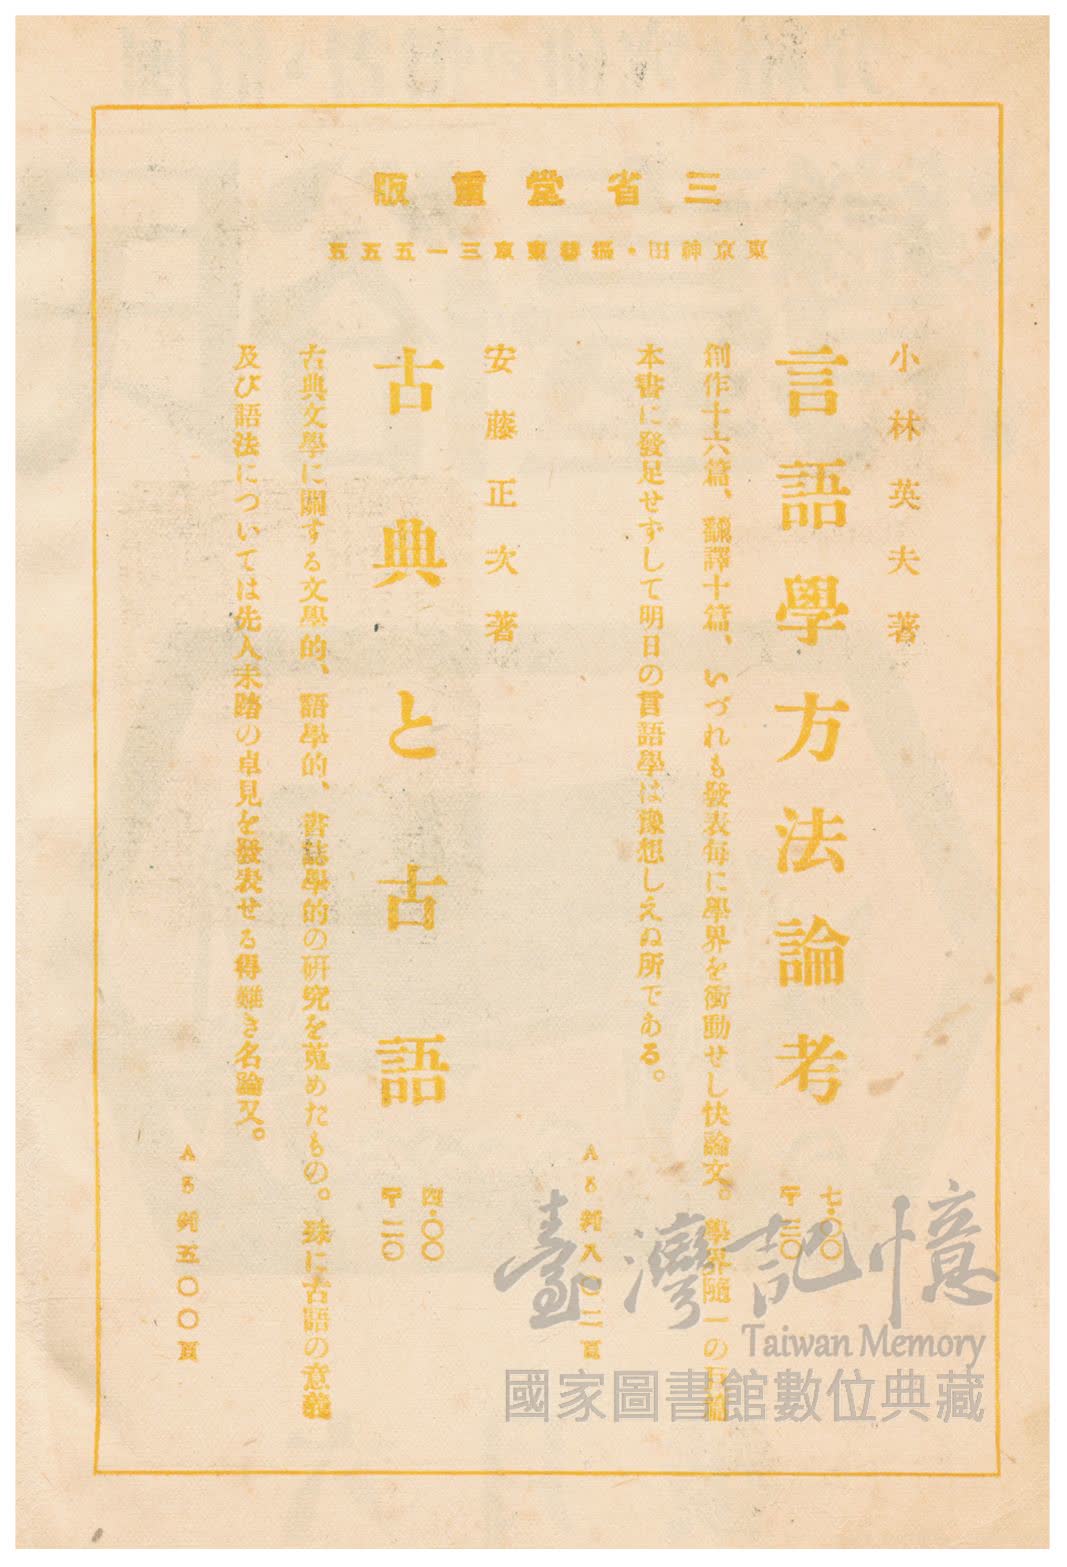 三省堂重版
東京神田・振替東京三一五五五
小林英夫著
言語學方法論考
七・〇〇
〒三〇
創作十六篇、飜譯十篇、いづれも發表每に學界を衝動せし快論文。學界隨一の
本書に發足せずして明日の言語學は豫想しえぬ所である。
A5判八〇二頁
安藤正次著
古典と古語
四・〇〇
〒二〇
古典文學に關する文學的、語學的、書誌學的の硏究を蒐めたもの。殊に古語の意義
及び語法については先人未踏の卓見を發表せる得難き名論文。
A5判五〇〇頁
臺灣記憶
Taiwan Memory
國家圖書館數位典藏